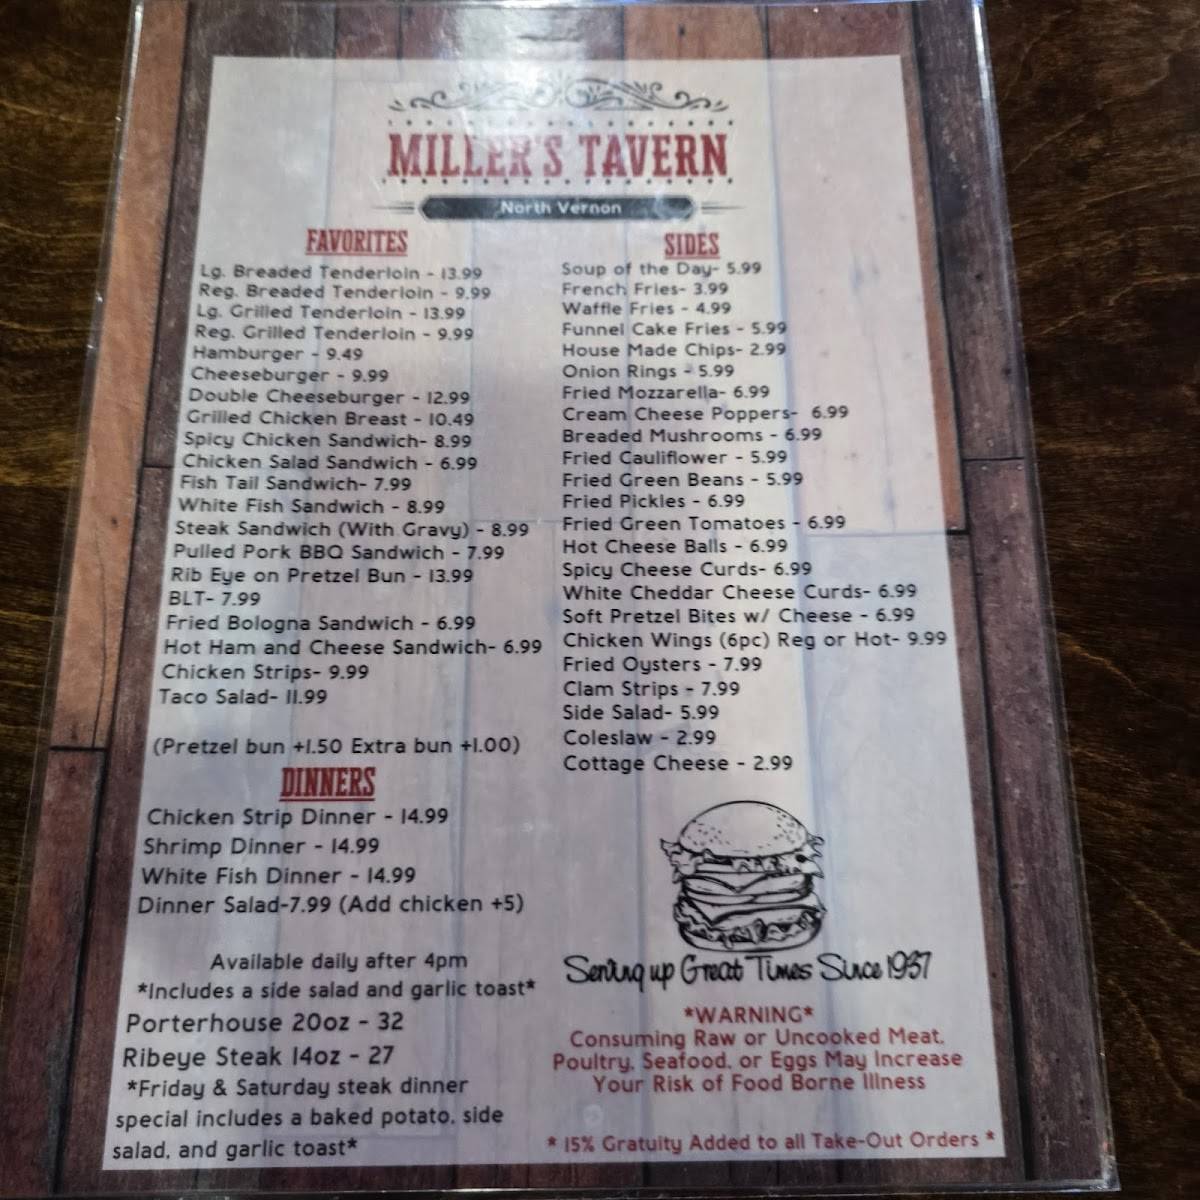 MILLER'S TAVERN
North Vernon
FAVORITES
Lg. Breaded Tenderloin - 13.99
Reg. Breaded Tenderloin - 9.99
Lg. Grilled Tenderloin - 13.99
Reg. Grilled Tenderloin - 9.99
Hamburger - 9.49
Cheeseburger - 9.99
Double Cheeseburger - 12.99
Grilled Chicken Breast - 10.49
Spicy Chicken Sandwich- 8.99
Chicken Salad Sandwich - 6.99
Fish Tail Sandwich- 7.99
White Fish Sandwich - 8.99
Steak Sandwich (With Gravy) - 8.99
Pulled Pork BBQ Sandwich - 7.99
Rib Eye on Pretzel Bun - 13.99
BLT- 7.99
Fried Bologna Sandwich - 6.99
Hot Ham and Cheese Sandwich- 6.99
Chicken Strips- 9.99
Taco Salad- 11.99
(Pretzel bun +1.50 Extra bun +1.00)
DINNERS
Chicken Strip Dinner - 14.99
Shrimp Dinner - 14.99
White Fish Dinner - 14.99
Dinner Salad-7.99 (Add chicken +5)
Available daily after 4pm
*Includes a side salad and garlic toast*
Porterhouse 20oz - 32
Ribeye Steak 14oz - 27
*Friday & Saturday steak dinner
special includes a baked potato, side
salad, and garlic toast*
SIDES
Soup of the Day- 5.99
French Fries- 3.99
Waffle Fries - 4.99
Funnel Cake Fries - 5.99
House Made Chips- 2.99
Onion Rings - 5.99
Fried Mozzarella- 6.99
Cream Cheese Poppers- 6.99
Breaded Mushrooms - 6.99
Fried Cauliflower - 5.99
Fried Green Beans - 5.99
Fried Pickles - 6.99
Fried Green Tomatoes - 6.99
Hot Cheese Balls - 6.99
Spicy Cheese Curds- 6.99
White Cheddar Cheese Curds- 6.99
Soft Pretzel Bites w/ Cheese - 6.99
Chicken Wings (6pc) Reg or Hot- 9.99
Fried Oysters - 7.99
Clam Strips - 7.99
Side Salad- 5.99
Coleslaw - 2.99
Cottage Cheese - 2.99
Serving up Great Times Since 1937
*WARNING*
Consuming Raw or Uncooked Meat,
Poultry, Seafood, or Eggs May Increase
Your Risk of Food Borne Illness
* 15% Gratuity Added to all Take-Out Orders *